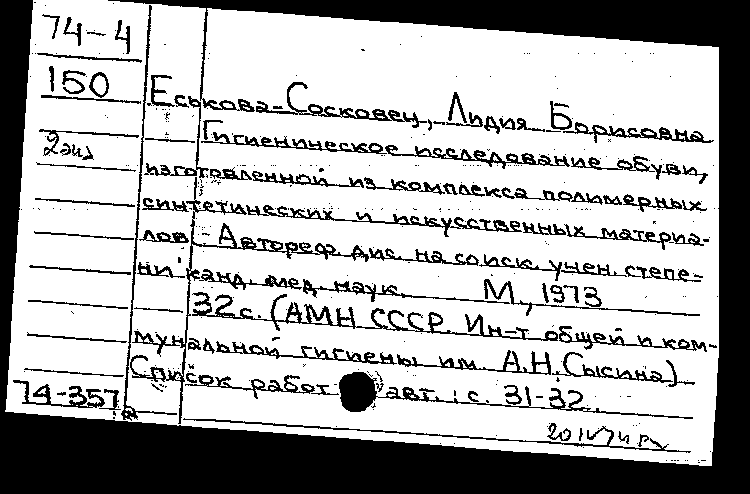 74-4
150
Еськова-Сосковец, Лидия Борисовна
Гигиеническое исследование обуви,
2 экз
изготовленной из комплекса полимерных
синтетических и искусственных материа-
лов. - Автореф. дис. на соиск. учен. степе-
ни канд. мед. наук. М., 1973
32 с. (АМН СССР. Ин-т общей и ком-
мунальной гигиены им. А.Н. Сысина)
Список работ авт.: с. 31-32.
74-357